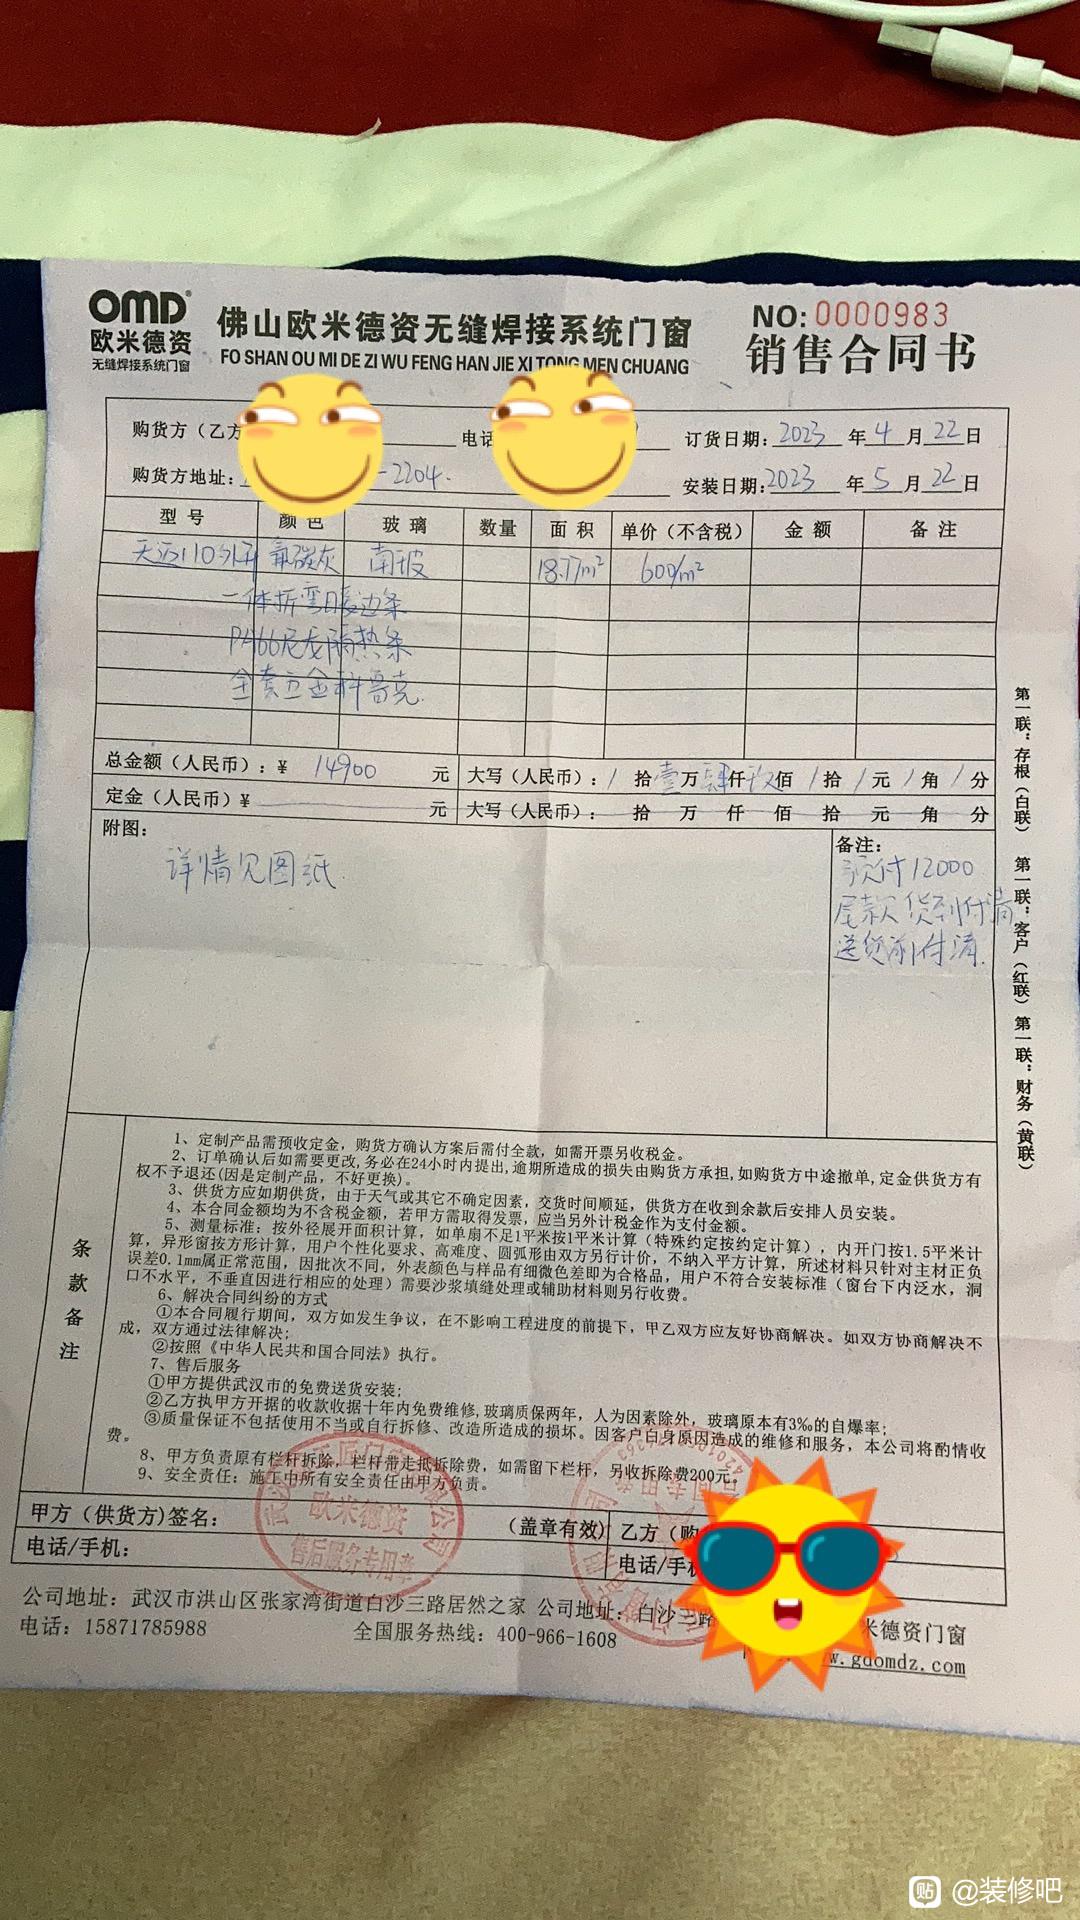 OMD®
欧米德资
无缝焊接系统门窗
佛山欧米德资无缝焊接系统门窗
FO SHAN OU MI DE ZI WU FENG HAN JIE XI TONG MEN CHUANG
NO: 0000983
销售合同书
购货方（乙方 电话 订货日期: 2023 年 4 月 22 日
购货方地址: -2204. 安装日期: 2023 年 5 月 22 日
型号 颜色 玻璃 数量 面积 单价（不含税） 金额 备注
天迈110外开 氟碳灰 南玻 18.7/m² 600/m²
一体折弯暖边条
PA66尼龙隔热条
全套五金科鲁克.
总金额（人民币）: ¥ 14900 元 大写（人民币）: / 拾 壹 万 肆 仟 玖 佰 / 拾 / 元 / 角 / 分
定金（人民币）¥ 元 大写（人民币）: 拾 万 仟 佰 拾 元 角 分
附图:
详情见图纸
备注:
预付12000
尾款货到付清
送货前付清.
第一联: 存根（白联） 第一联: 客户（红联） 第一联: 财务（黄联）
条款备注
1、定制产品需预收定金，购货方确认方案后需付全款，如需开票另收税金。
2、订单确认后如需要更改,务必在24小时内提出,逾期所造成的损失由购货方承担,如购货方中途撤单,定金供货方有
权不予退还(因是定制产品，不好更换)。
3、供货方应如期供货，由于天气或其它不确定因素，交货时间顺延，供货方在收到余款后安排人员安装。
4、本合同金额均为不含税金额，若甲方需取得发票，应当另外计税金作为支付金额。
5、测量标准: 按外径展开面积计算，如单扇不足1平米按1平米计算（特殊约定按约定计算），内开门按1.5平米计
算，异形窗按方形计算，用户个性化要求、高难度、圆弧形由双方另行计价，不纳入平方计算，所述材料只针对主材正负
误差0.1mm属正常范围，因批次不同，外表颜色与样品有细微色差即为合格品，用户不符合安装标准（窗台下内泛水，洞
口不水平，不垂直因进行相应的处理）需要沙浆填缝处理或辅助材料则另行收费。
6、解决合同纠纷的方式
①本合同履行期间，双方如发生争议，在不影响工程进度的前提下，甲乙双方应友好协商解决。如双方协商解决不
成，双方通过法律解决;
②按照《中华人民共和国合同法》执行。
7、售后服务
①甲方提供武汉市的免费送货安装;
②乙方执甲方开据的收款收据十年内免费维修,玻璃质保两年，人为因素除外，玻璃原本有3‰的自爆率;
③质量保证不包括使用不当或自行拆修、改造所造成的损坏。因客户自身原因造成的维修和服务，本公司将酌情收
费。
8、甲方负责原有栏杆拆除，栏杆带走抵拆除费，如需留下栏杆，另收拆除费200元。
9、安全责任: 施工中所有安全责任由甲方负责。
欧米德资
售后服务专用章
甲方（供货方)签名: （盖章有效） 乙方（购
电话/手机: 电话/手机
公司地址: 武汉市洪山区张家湾街道白沙三路居然之家 公司地址: 白沙三路 米德资门窗
电话: 15871785988 全国服务热线: 400-966-1608 w.gdomdz.com
贴 @装修吧